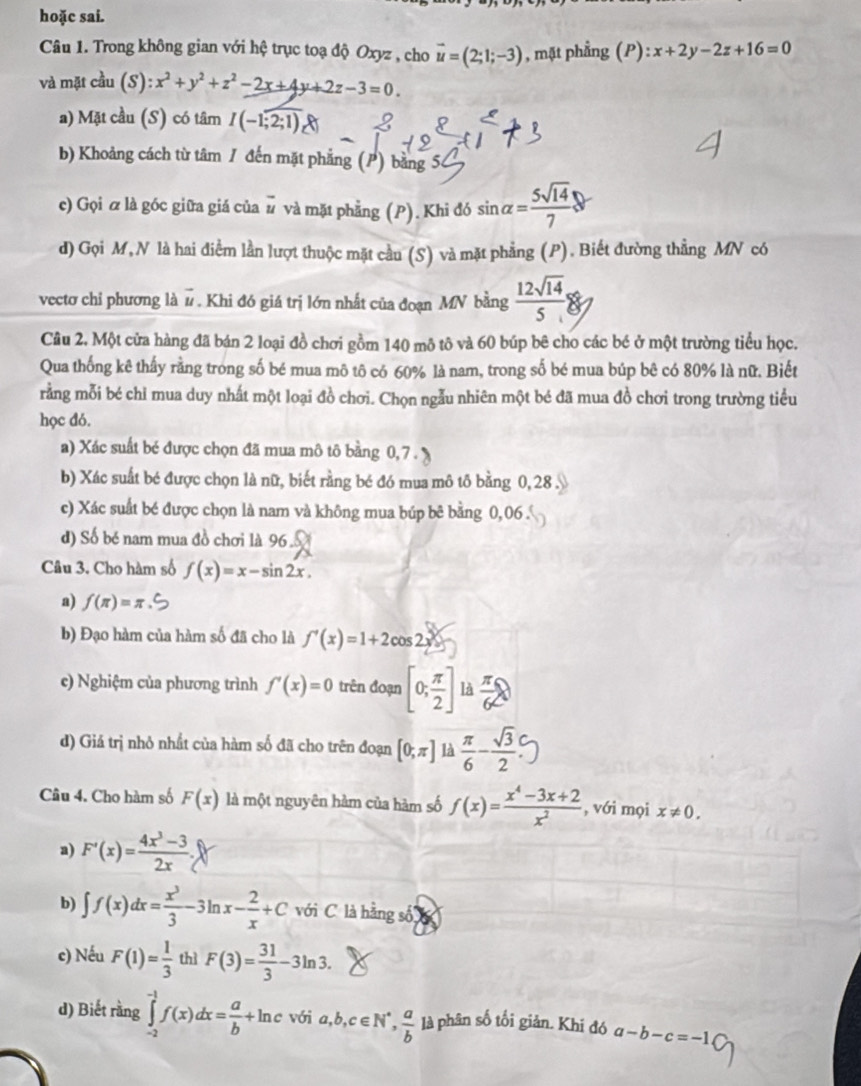 hoặc sai.
Câu 1. Trong không gian với hệ trục toạ độ Oxyz , cho \vec{u} = (2;1;-3) , mặt phẳng (P): x+2y-2z+16=0
và mặt cầu (S): x²+y²+z²-2x+4y+2z-3=0 .
a) Mặt cầu (S) có tâm I(-1;2;1)
b) Khoảng cách từ tâm I đến mặt phẳng (P) bằng 5
4
c) Gọi α là góc giữa giá của \vec{u} và mặt phẳng (P). Khi đó sin α = \frac{5\sqrt{14}}{7}
d) Gọi M,N là hai điểm lần lượt thuộc mặt cầu (S) và mặt phẳng (P). Biết đường thẳng MN có
vectơ chỉ phương là \vec{u} . Khi đó giá trị lớn nhất của đoạn MN bằng \frac{12\sqrt{14}}{5}
Câu 2. Một cửa hàng đã bán 2 loại đồ chơi gồm 140 mô tô và 60 búp bê cho các bé ở một trường tiểu học.
Qua thống kê thấy rằng trong số bé mua mô tô có 60% là nam, trong số bé mua búp bê có 80% là nữ. Biết
rằng mỗi bé chỉ mua duy nhất một loại đồ chơi. Chọn ngẫu nhiên một bé đã mua đồ chơi trong trường tiểu
học đó.
a) Xác suất bé được chọn đã mua mô tô bằng 0,7 .
b) Xác suất bé được chọn là nữ, biết rằng bé đó mua mô tô bằng 0,28 .
c) Xác suất bé được chọn là nam và không mua búp bê bằng 0,06 .
d) Số bé nam mua đồ chơi là 96 .
Câu 3. Cho hàm số f(x) = x - sin 2x .
a) f(π) = π .
b) Đạo hàm của hàm số đã cho là f'(x) = 1+2cos 2x
c) Nghiệm của phương trình f'(x) = 0 trên đoạn [0; \frac{π}{2}] là \frac{π}{6}
d) Giá trị nhỏ nhất của hàm số đã cho trên đoạn [0;π] là \frac{π}{6} - \frac{\sqrt{3}}{2} .
Câu 4. Cho hàm số F(x) là một nguyên hàm của hàm số f(x) = \frac{x^4-3x+2}{x^2} , với mọi x ≠ 0 .
a) F'(x) = \frac{4x^3-3}{2x} .
b) ∫ f(x)dx = \frac{x^3}{3} - 3ln x - \frac{2}{x} + C với C là hằng số
c) Nếu F(1) = \frac{1}{3} thì F(3) = \frac{31}{3} - 3ln 3.
d) Biết rằng \int_{-2}^{-1} f(x)dx = \frac{a}{b} + ln c với a,b,c ∈ N^*, \frac{a}{b} là phân số tối giản. Khi đó a-b-c = -1